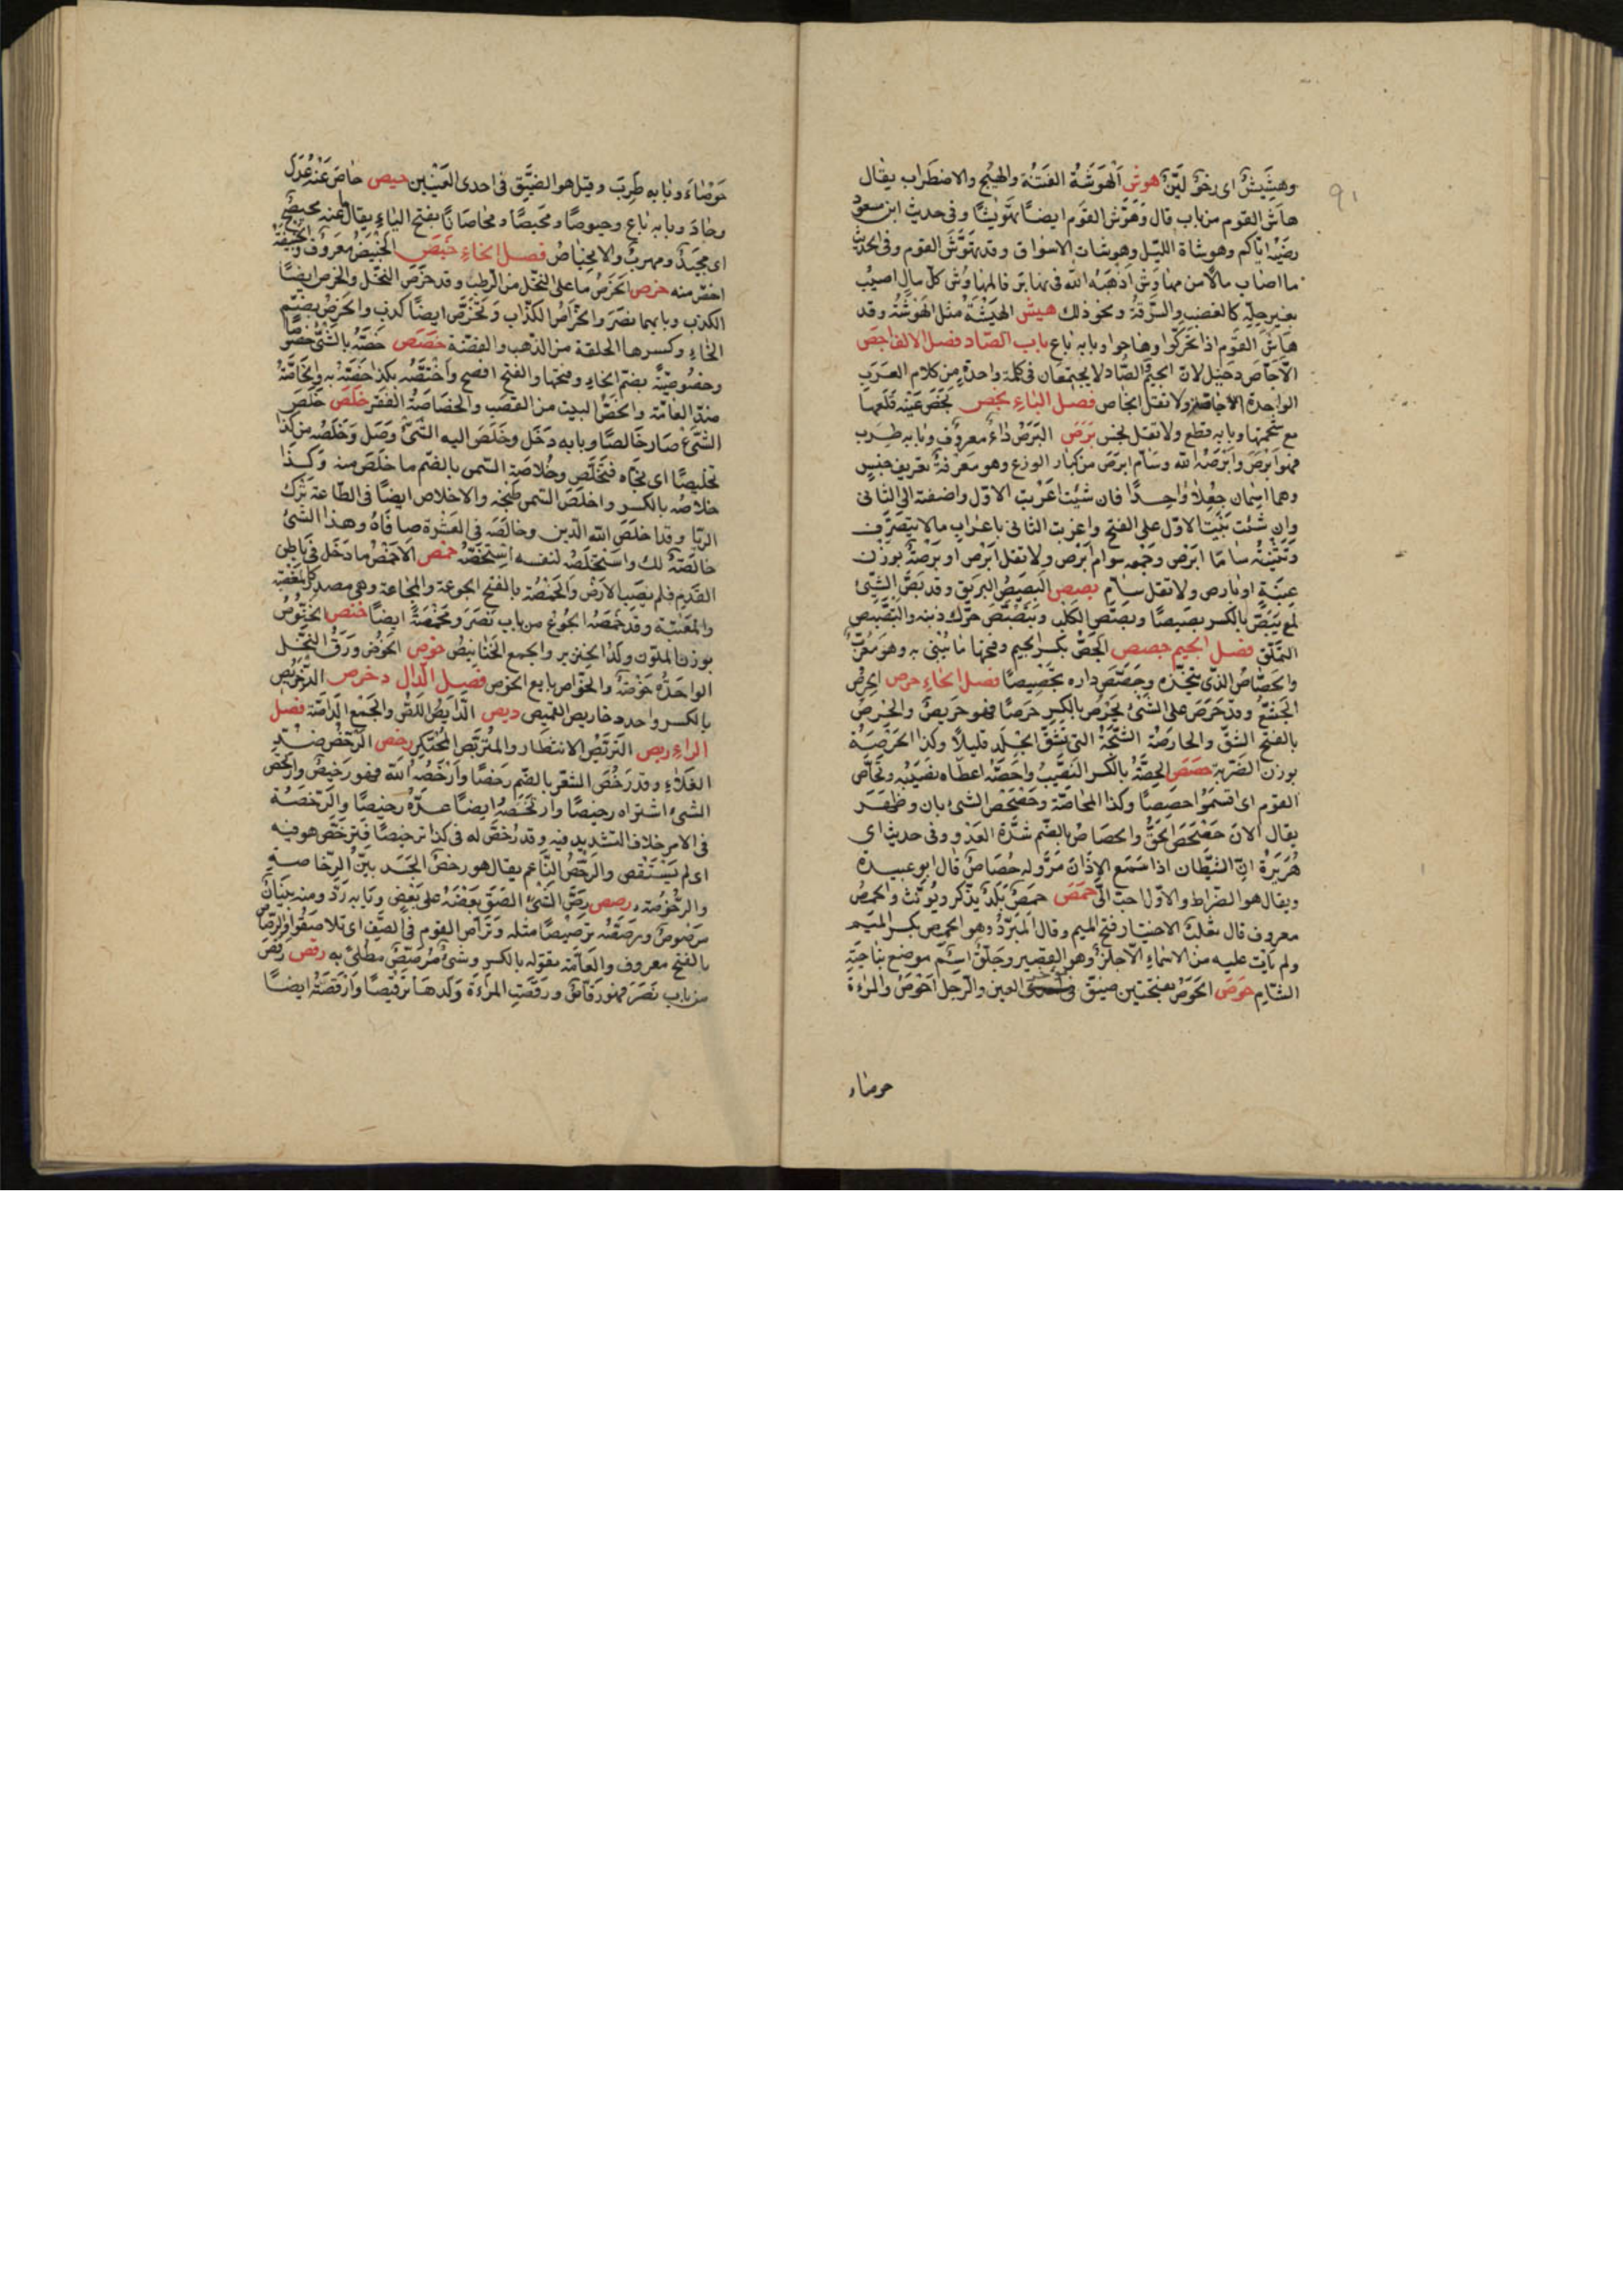 ٩١
وهشيش اى رخو لين هوش الهوشة الفتنة والهيج والاضطراب يقال
هاش القوم من باب قال وهوش القوم ايضا تهويشا وفى حديث ابن مسعود
رضيه اياكم وهوشاة الليل وهوشات الاسواق وقد تهوش القوم وفى الحديث
ما اصاب مالا من مهاوش اذهبه الله فى نهابر فالمهاوش كل مال اصيب
بغير حله كالغضب والسرقة ونحو ذلك هيش الهيشة مثل الهوشة وقد
هاش القوم اذا تحركوا وهاجوا وبابه باع باب الصاد فصل الالف اجص
الاجاص دخيل لان الجيم والصاد لا يجتمعان فى كلمة واحدة من كلام العرب
الواحدة الاجاصة ولا تقل انجاص فصل الباء بخص بخص عينه قلعها
مع شحمتها وبابه قطع ولا تقل بخس برص البرص داء معروف وبابه طرب
فهو ابرص وابرصه الله وسام ابرص من كبار الوزع وهو معرفة تعريف جنس
وهما اسمان جعلا واحدا فان شئت اعربت الاول واضفته الى الثانى
وان شئت بنيت الاول على الفتح واعربت الثانى باعراب مالا يتصرف
وتثنيته ساما ابرص وجمعه سوام ابرص ولا تقل ابرص او برصة بوزن
عنبة او بارص ولا تقل سام بصص البصيص البريق وقد بص الشئ
لمع يبص بالكسر بصيصا وبصبص الكلب وتبصبص حرك ذنبه والتبصبص
التملق فصل الجيم جصص الجص بكسر الجيم وفتحها ما يبنى به وهو معرب
والجصاص الذى يتخذه وجصص داره تجصيصا فصل الحاء حرص الحرص
الجشع وقد حرص على الشئ يحرص بالكسر حرصا فهو حريص والحرص
بالفتح الشق والحارصة الشجة التى تشق الجلد قليلا وكذا الحرصة
بوزن الضربة حصص الحصة بالكسر النصيب واحصه اعطاه نصيبه وتحاص
القوم اى اقتسموا حصصا وكذا المحاصة وحصحص الشئ بان وظهر
يقال الان حصحص الحق والحصاص بالضم شدة العدو وفى حديث ابى
هريرة ان الشيطان اذا سمع الاذان مر وله حصاص قال ابو عبيدة
ويقال هو الضراط والاول احب الى حمص حمص بلد يذكر ويونث والحمص
معروف قال ثعلب الاختيار فتح الميم وقال المبرد وهو الحمص بكسر الميم
ولم يات عليه من الاسماء الا حلز وهو القصير وجلق اسم موضع بناحية
الشام حوص الحوص بفتحتين ضيق فى العين والرجل احوص والمراءة
حوصاء
حوصاء وبابه طرب وقيل هو الضيق فى احدى العينين حيص حاص عنه عدل
وحاد وبابه باع وحيوصا ومحيصا ومحاصا بفتح الياء يقال ما عنه محيص
اى محيد ومهرب والانحياص فصل الخاء خبص الخبيص معروف والخبيصة
اخص منه خرص الخرص ما على النخل من الرطب وقد خرص النخل والخرص ايضا
الكذب وبابهما نصر والخراص الكذاب وتخرص ايضا كذب والخرص بضم
الخاء وكسرها الحلقة من الذهب والفضة خصص خصه بالشئ خصوصا
وخصوصية بضم الخاء وفتحها والفتح افصح واختصه بكذا خصه به والخاصة
ضد العامة والخص البيت من القصب والخصاصة الفقر خلص خلص
الشئ صار خالصا وبابه دخل وخلص اليه الشئ وصل وخلصه من كذا
تخليصا اى نجاه فتخلص وخلاصة السمن بالضم ما خلص منه وكذا
خلاصه بالكسر واخلص السمن طبخه والاخلاص ايضا فى الطاعة ترك
الريا وقد اخلص الله الدين وخالصه فى العشرة صافاه وهذا الشئ
خالصة لك واستخلصه لنفسه استخصه خمص الاخمص ما دخل فى باطن
القدم فلم يصب الارض والخمصة بالفتح الجوعة والمخاعة وهى مصدر كالمغضبة
والمعتبة وقد خمصه الجوع من باب نصر ومخمصة ايضا خنص الخنوص
بوزن الملون ولد الخنزير والجمع الخنانيص خوص الخوص ورق النخل
الواحدة خوصة والخواص بايع الخوص فصل الدال دخرص الدخريص
بالكسر واحد دخاريص القميص ديص الدايص اللص والجمع الداصة فصل
الراء ربص التربص الانتظار والمتربص المحتكر رخص الرخص ضد
الغلاء وقد رخص السعر بالضم رخصا وارخصه الله فهو رخيص وارتخص
الشئ اشتراه رخيصا وارتخصه ايضا عده رخيصا والرخصة
فى الامر خلاف التشديد فيه وقد رخص له فى كذا ترخيصا فترخص هو فيه
اى لم يستقص والرخص الناعم يقال هو رخص الجسد بين الرخاصة
والرخوصة رصص رص الشئ الصق بعضه على بعض وبابه رد ومنه بنيان
مرصوص ورصصه ترصيصا مثله وتراص القوم فى الصف اى تلاصقوا والرصاص
بالفتح معروف والعامة تقوله بالكسر وشئ مرصص مطلى به رقص رقص
من باب نصر فهو رقاص ورقصت المراءة ولدها ترقيصا وارقصته ايضا